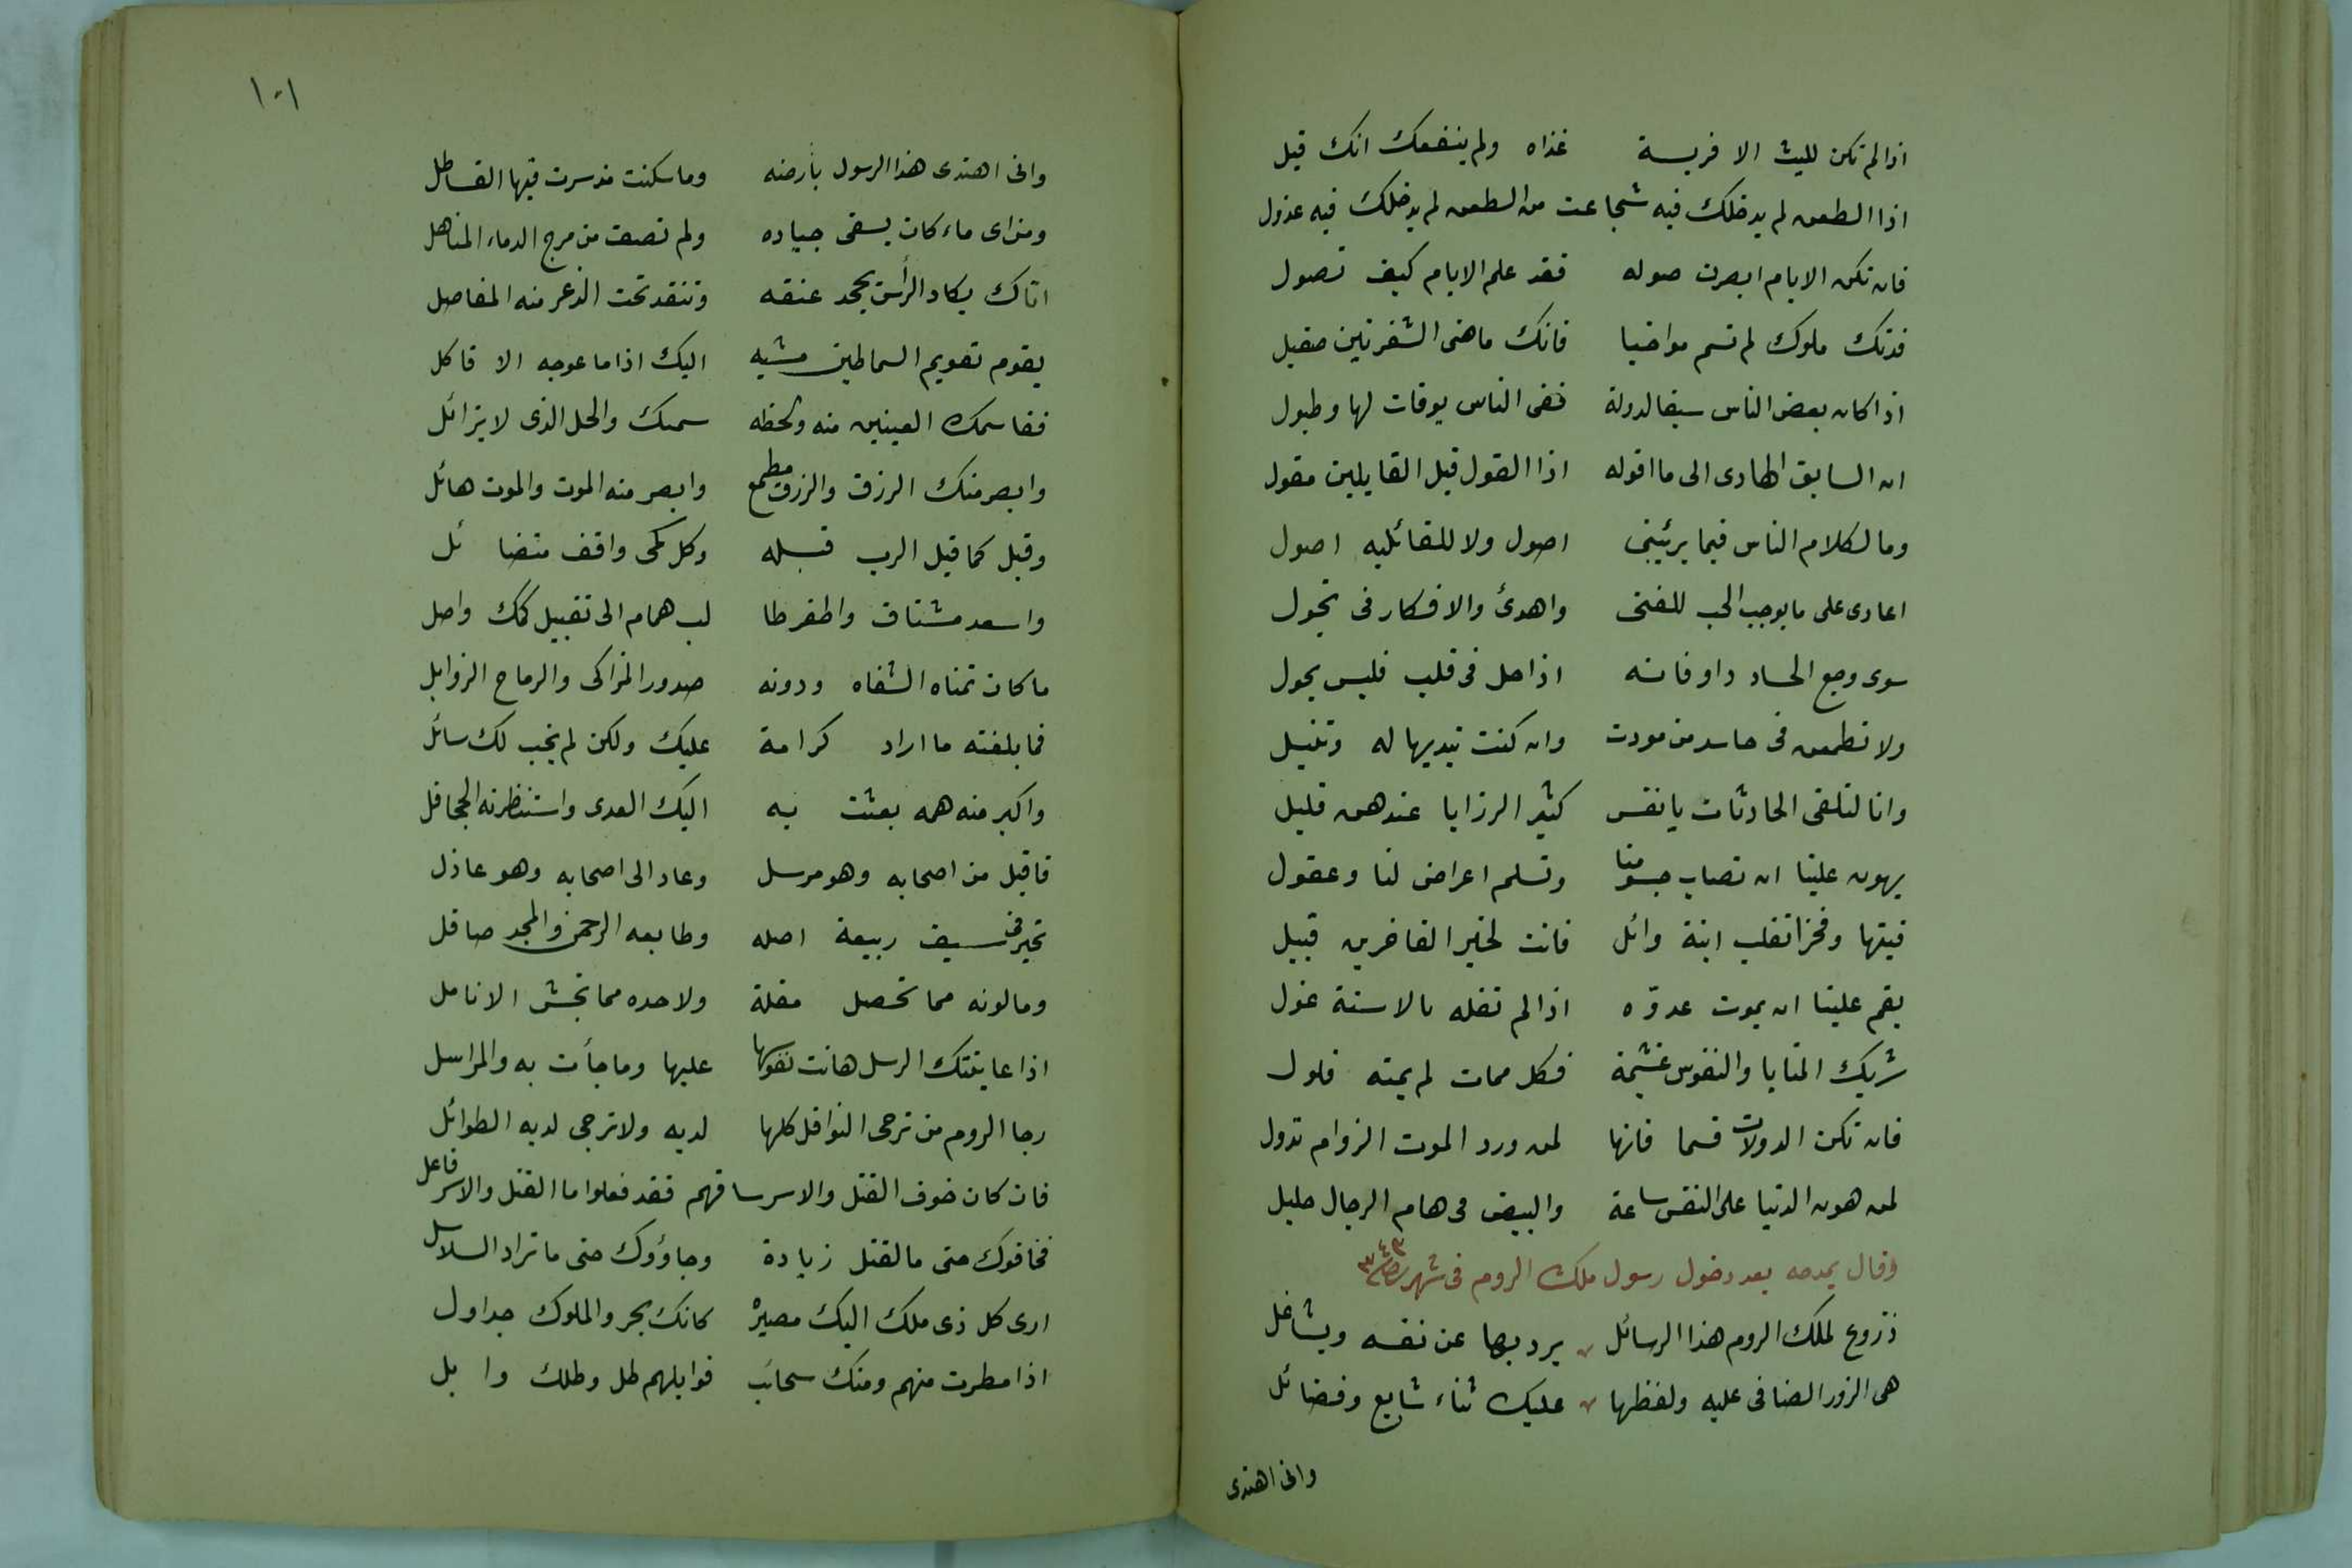 اذا لم تكن لليث الا فريسة غذاه ولم ينفعك انك قيل
اذا الطعن لم يدخلك فيه شجاعت من الطعن لم يدخلك فيه عذول
فان تكن الايام ابصرت صوله فقد علم الايام كيف تصول
فدتك ملوك لم تسم مواضيا فانك ماضى الشفرتين صقيل
اذا كان بعض الناس سيفا لدولة ففى الناس بوقات لها وطبول
انا السابق الهادى الى ما اقوله اذا القول قبل القايلين مقول
وما لكلام الناس فيما يريبنى اصول ولا للقائليه اصول
اعادى على ما يوجب الحب للفتى واهدئ والافكار فى تجول
سوى وجع الحساد داو فانه اذا حل فى قلب فليس يحول
ولا تطمعن فى حاسد من مودت وان كنت تبديها له وتنيل
وانا لنلقى الحادثات يانفس كثير الرزايا عندهن قليل
يهون علينا ان تصاب جسومنا وتسلم اعراض لنا وعقول
فتيها وفخرا تغلب ابنة وائل فانت لخير الفاخرين قبيل
يغم علينا ان يموت عدوّه اذا لم تغله بالاسنة غول
شريك المنايا والنفوس غنيمة فكل ممات لم يمته غلول
فان تكن الدولات قسما فانها لمن ورد الموت الزوام تدول
لمن هون الدنيا على النفس ساعة والبيض فى هام الرجال صليل
وقال يمدحه بعد دخول رسول ملك الروم فى شهر صفر ٣٤٣
دروع لملك الروم هذا الرسائل يرد بها عن نفسه ويشاغل
هى الزرد الضافى عليه ولفظها عليك ثناء شايع وفضائل
وانى اهتدى
١٠١
وانى اهتدى هذا الرسول بارضه وما سكنت مذ سرت فيها القساطل
ومن اى ماء كان يسقى جياده ولم تصف من مزج الدماء المناهل
اتاك يكاد الرأس يجحد عنقه وتنقد تحت الذعر منه المفاصل
يقوم تقويم السماطين مشيه اليك اذا ما عوجه الا فاكل
فقاسمك العينين منه ولحظه سميك والخل الذى لا يزائل
وابصر منك الرزق والرزق مطمع وابصر منه الموت والموت هائل
وقبل كما قبل الرب قبله وكل كمى واقف متضا ئل
واسعد مشتاق واظفر طا لب همام الى تقبيل كمك واصل
ما كان تمناه الشفاه ودونه صدور المذاكى والرماح الزوابل
فما بلغته ما اراد كرامة عليك ولكن لم يخب لك سائل
واكبر منه همه بعثت به اليك العدى واستنظرته الجحافل
فاقبل من اصحابه وهو مرسل وعاد الى اصحابه وهو عاذل
تحير فى سيف ربيعة اصله وطابعه الرحمن والمجد صاقل
وما لونه مما تحصل مقلة ولا حده مما تجش الانامل
اذا عاينتك الرسل هانت نفوسها عليها وما جأت به والمراسل
رجا الروم من ترجى النوافل كلها لديه ولا ترجى لديه الطوائل
فان كان خوف القتل والاسر ساقهم فقد فعلوا ما القتل والاسر فاعل
فخافوك حتى ما لقتل زيادة وجاؤوك حتى ما تراد السلاسل
ارى كل ذى ملك اليك مصيره كانك بحر والملوك جداول
اذا مطرت منهم ومنك سحائب فوابلهم طل وطلك وا بل